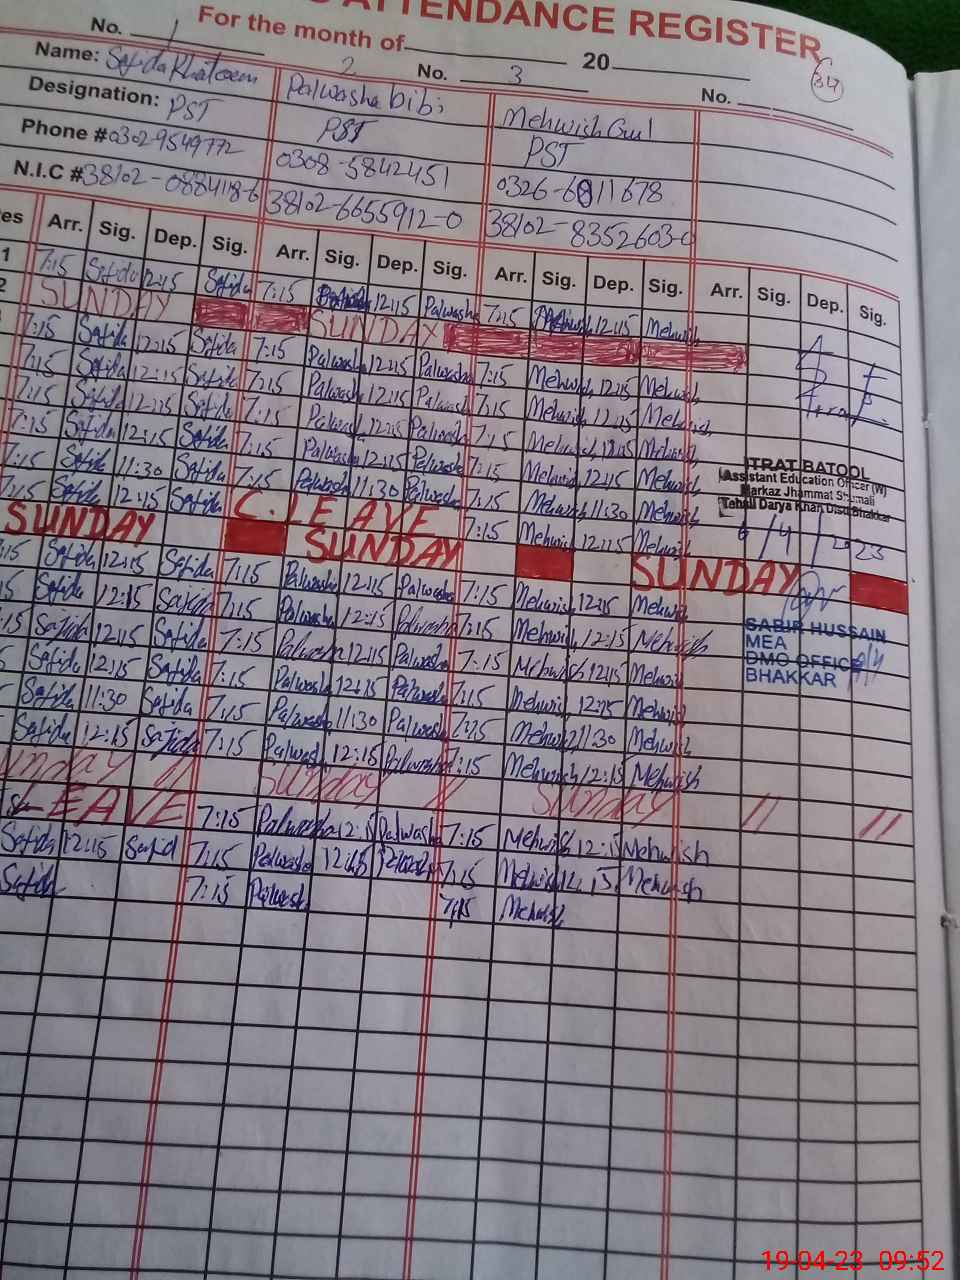 ATTENDANCE REGISTER
For the month of 20
34
No. 1 2 No. 3 No.
Name: Sajida Khatoon Palwasha bibi Mehwish Gul
Designation: PST PST PST
Phone #0302-9549772 0308-5842451 0326-6811678
N.I.C #38102-0884118-6 38102-6655912-0 38102-8352603-0
Arr. Sig. Dep. Sig. Arr. Sig. Dep. Sig. Arr. Sig. Dep. Sig. Arr. Sig. Dep. Sig.
1 7:15 Sajida 12:15 Sajida 7:15 12:15 Palwasha 7:15 Mehwish 12:15 Mehwish
2 SUNDAY SUNDAY
7:15 Sajida 12:15 Sajida 7:15 Palwasha 12:15 Palwasha 7:15 Mehwish 12:15 Mehwish
7:15 Sajida 12:15 Sajida 7:15 Palwasha 12:15 Palwasha 7:15 Mehwish 12:15 Mehwish
7:15 Sajida 12:15 Sajida 7:15 Palwasha 12:15 Palwasha 7:15 Mehwish 12:15 Mehwish
7:15 Sajida 12:15 Sajida 7:15 Palwasha 12:15 Palwasha 7:15 Mehwish 12:15 Mehwish
7:15 Sajida 11:30 Sajida 7:15 Palwasha 11:30 Palwasha 7:15 Mehwish 11:30 Mehwish
7:15 Sajida 12:15 Sajida C. LEAVE 7:15 Mehwish 12:15 Mehwish
SUNDAY SUNDAY SUNDAY
7:15 Sajida 12:15 Sajida 7:15 Palwasha 12:15 Palwasha 7:15 Mehwish 12:15 Mehwish
7:15 Sajida 12:15 Sajida 7:15 Palwasha 12:15 Palwasha 7:15 Mehwish 12:15 Mehwish
7:15 Sajida 12:15 Sajida 7:15 Palwasha 12:15 Palwasha 7:15 Mehwish 12:15 Mehwish
Sajida 12:15 Sajida 7:15 Palwasha 12:15 Palwasha 7:15 Mehwish 12:15 Mehwish
Sajida 11:30 Sajida 7:15 Palwasha 11:30 Palwasha 7:15 Mehwish 11:30 Mehwish
Sajida 12:15 Sajida 7:15 Palwasha 12:15 Palwasha 7:15 Mehwish 12:15 Mehwish
Sunday // Sunday // Sunday // //
LEAVE 7:15 Palwasha 12:15 Palwasha 7:15 Mehwish 12:15 Mehwish
Sajida 12:15 Sajida 7:15 Palwasha 12:15 Palwasha 7:15 Mehwish 12:15 Mehwish
Sajida 7:15 Palwasha 7:15 Mehwish
ITRAT BATOOL
Assistant Education Officer (W)
Markaz Jhammat Shumali
Tehsil Darya Khan Distt Bhakkar
6/4/2023
SABIR HUSSAIN
MEA
DMO OFFICE
BHAKKAR
19-04-23 09:52